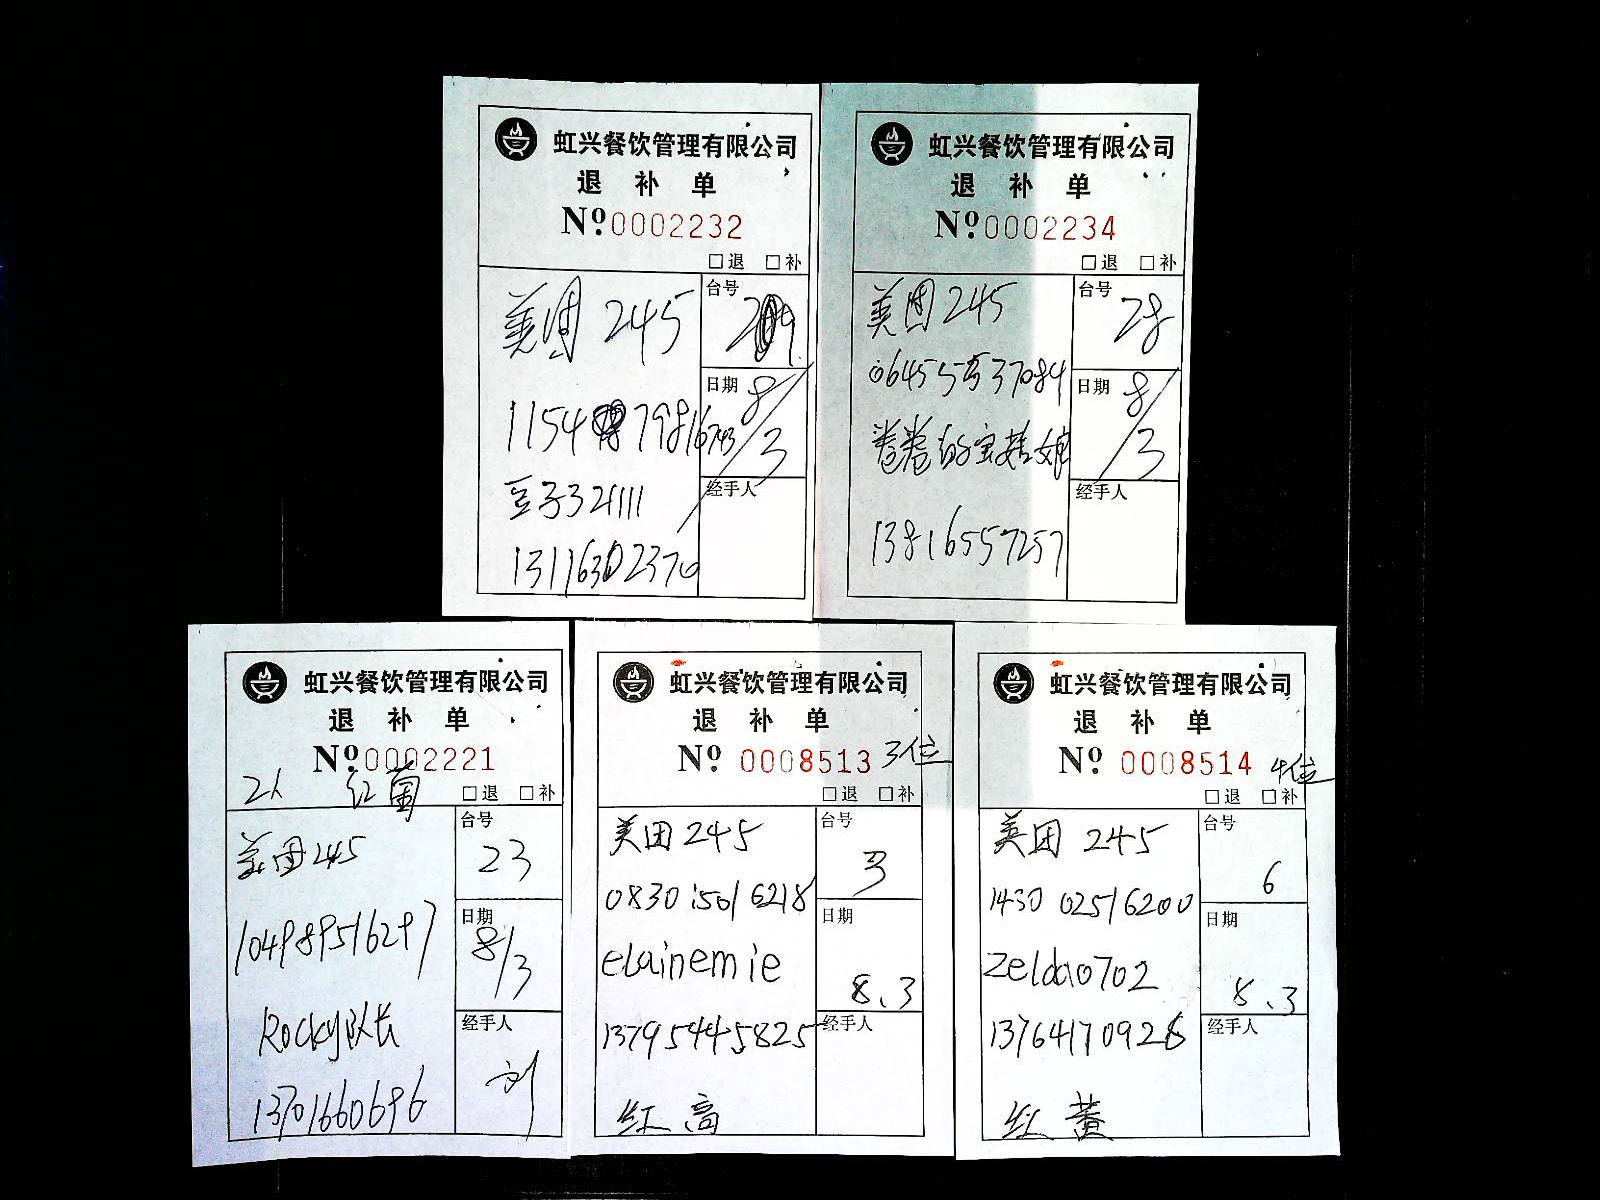 虹兴餐饮管理有限公司
退 补 单
Nº 0002232
□退 □补
美团 245
台号
29
1154 79816743
日期
8/3
豆子321111
经手人
13116302370
虹兴餐饮管理有限公司
退 补 单
Nº 0002234
□退 □补
美团 245
台号
28
日期
8/3
卷卷的宝姑娘
经手人
13816557257
虹兴餐饮管理有限公司
退 补 单
Nº 0002221
2人 红
□退 □补
美团245
台号
23
104989516297
日期
8/3
Rocky队长
经手人
刘
13701660696
虹兴餐饮管理有限公司
退 补 单
Nº 0008513 3位
□退 □补
美团 245
台号
3
0830 1501 6218
日期
8.3
elainemie
13795445825
经手人
红
虹兴餐饮管理有限公司
退 补 单
Nº 0008514 4位
□退 □补
美团 245
台号
6
1430 02516200
日期
8.3
zelda0702
13764170928
经手人
红 黄